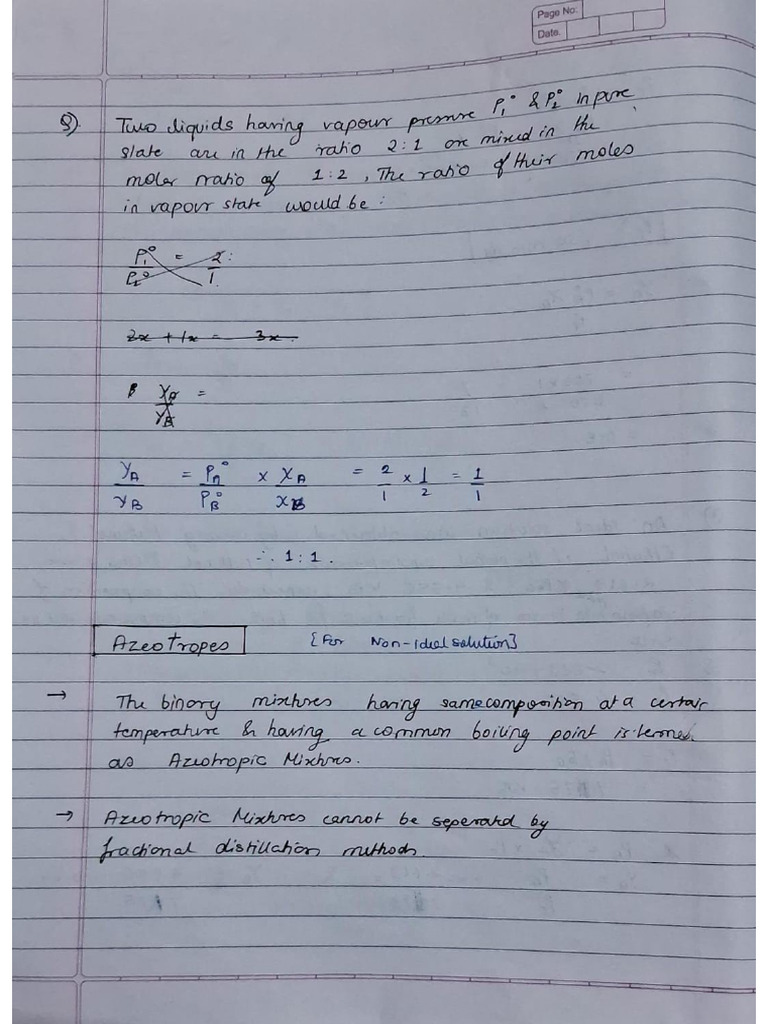 Page No:
Date.
Q) Two liquids having vapour pressure P₁° & P₂° in pure
state are in the ratio 2:1 are mixed in the
molar ratio of 1:2, The ratio of their moles
in vapour state would be:
P₁°/P₂° = 2:/1.
2x + 1x = 3x.
YA/YB =
YA/YB = PA°/PB° × XA/XB = 2/1 × 1/2 = 1/1
∴ 1:1.
Azeotropes [For Non-ideal solution]
→ The binary mixtures having same composition at a certain
temperature & having a common boiling point is termed
as Azeotropic Mixtures.
→ Azeotropic Mixtures cannot be seperated by
fractional distillation methods.